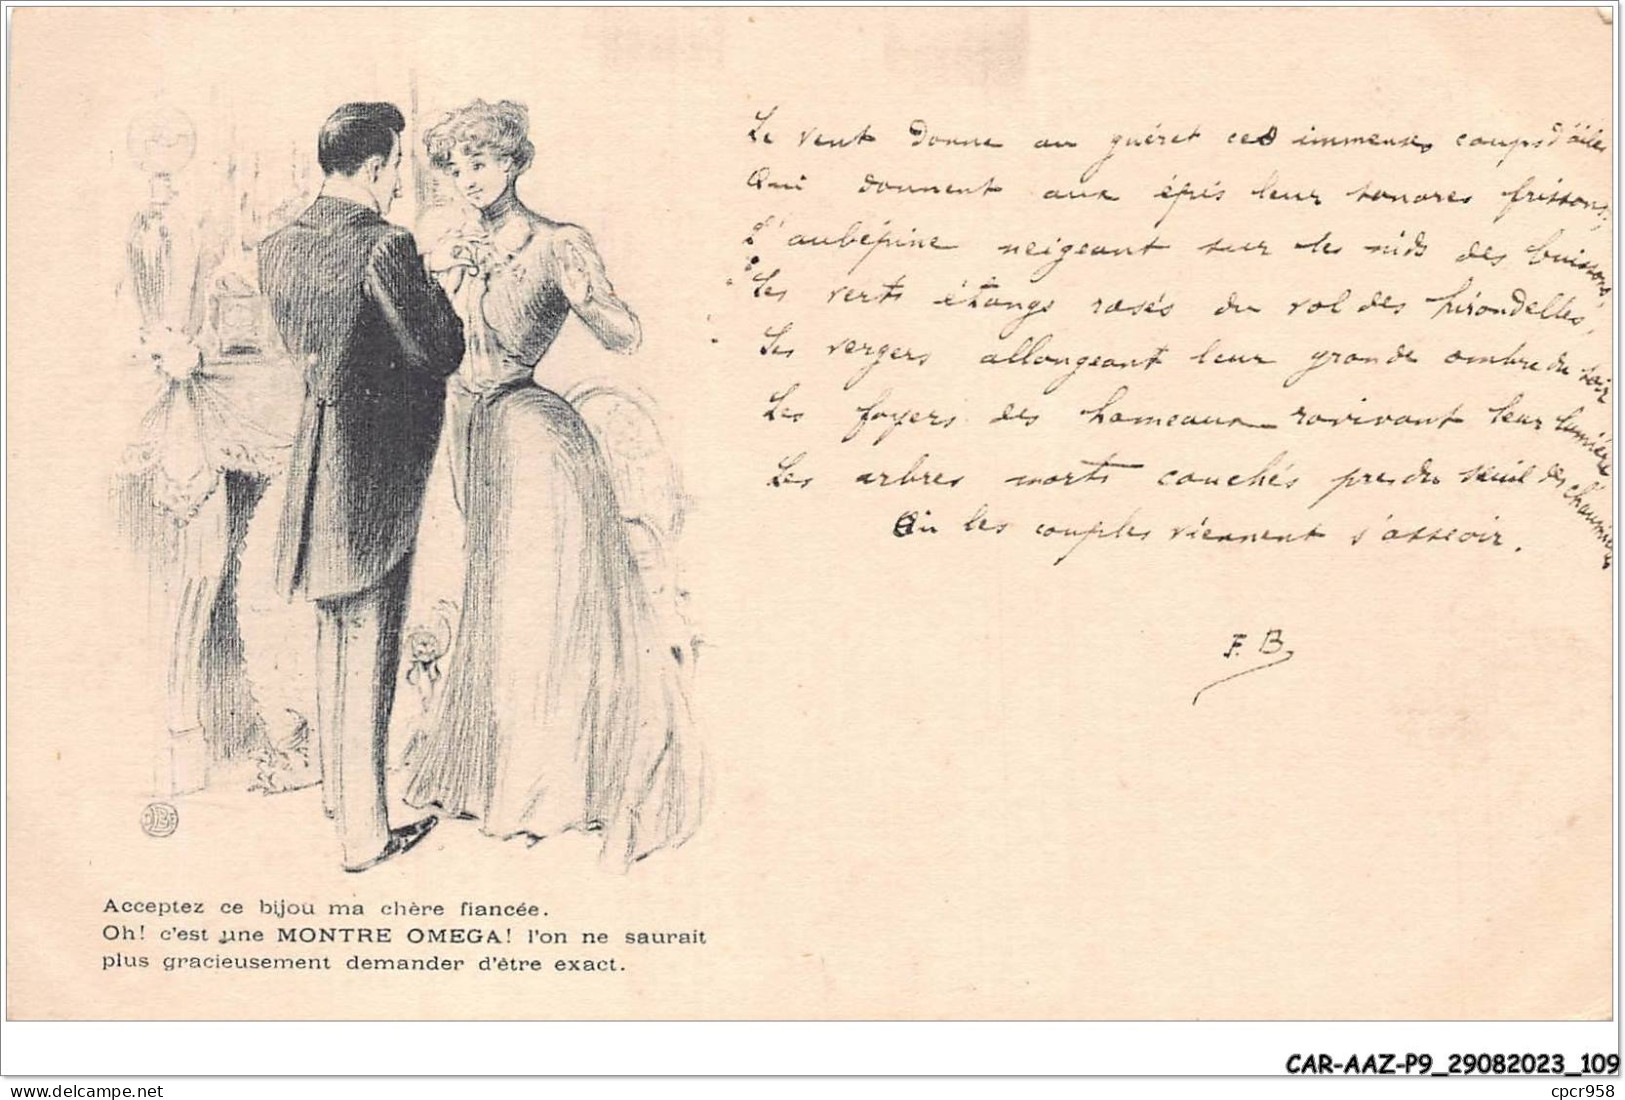 Le vent donne au guéret ces immenses coups d'ailes
Qui donnent aux épis leur sonores frissons,
L'aubépine neigeant sur les nids des buissons,
Les verts étangs rasés du vol des hirondelles,
Les vergers allongeant leur grande ombre du soir
Les foyers des hameaux ravivant leur lumière
Les arbres morts couchés pres du seuil des chaumières
Où les couples viennent s'asseoir.
F. B.
Acceptez ce bijou ma chère fiancée.
Oh! c'est une MONTRE OMEGA! l'on ne saurait
plus gracieusement demander d'être exact.
CAR-AAZ-P9_29082023_109
cpcr958